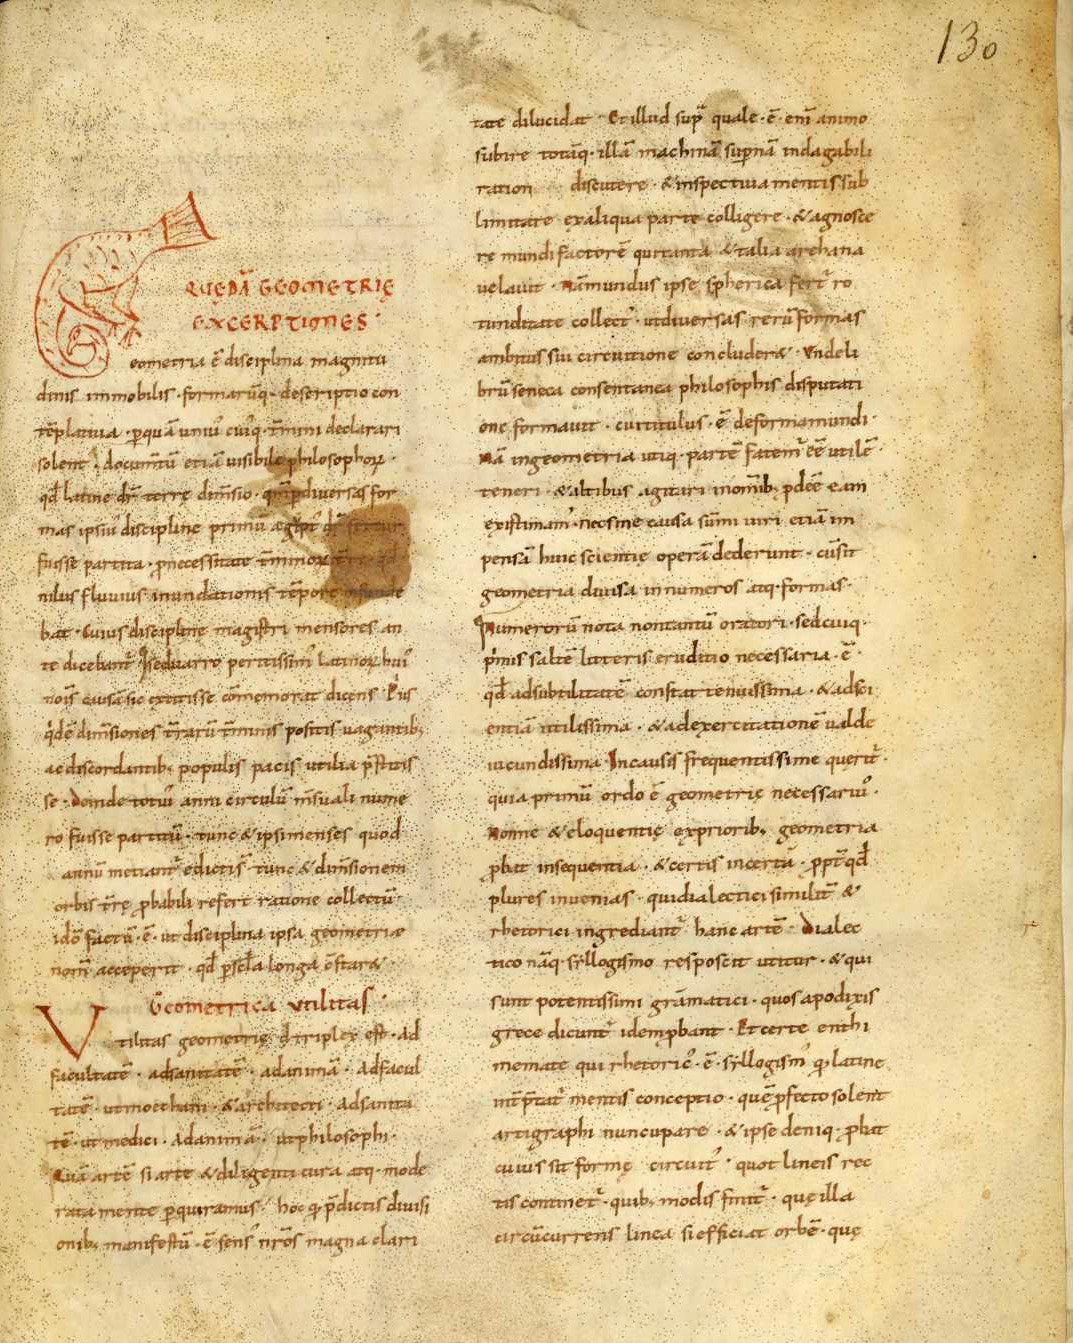 130
QUĘDÃ GEOMETRIĘ
EXCERPTIONES ·
eometria ē disciplina magnitu
dinis immobilis · formarūq· descriptio con
tēplativa · p quā uniuꝰ cuiꝰq· t̄mini declarari
solent · documtū etiā visibile philosophoꝝ ·
qđ latine dr̄ terrę dim̄sio · qm̄ p diversas for
mas ipsiuꝰ discipline primū ęgiptꝰ dr̄ fertur
fuisse partita · p necessitate t̄minoꝝ t̄rę · qđ
nilus fluvius inundationis tēpore
bat · Cuius disciplinę magistri mensores an
te dicebantᷣ Sed varro peritissimꝰ latinoꝝ huiꝰ
nois̄ causā sic extitisse cōmemorat dicens · Priꝰ
qⁱdē dim̄siones t̄rarū t̄minis positis vagantibꝫ
ac discordantibꝫ populis pacis utilia p̄stitis
se · Deinde totiꝰ anni circulū m̄suali nume
ro fuisse partitū · tunc & ipsi menses quod
annū metiantᷣ edicti sᷣ · tunc & dim̄sionem
orbis t̄rę pbabili refert ratione collectū ·
ido̅ factū · ē · ut disciplina ipsa geometrię
nom̄ acceperit · qđ p sc̄la longa c̄star& ·
Geometrica Utilitas ·
V tilitas geometrię · triplex est · Ad
facultatē · ad sanitatē · ad animā · Ad facul
tatē · ut mechani · & architecti · Ad sanita
tē · ut medici · Ad animā · ut philosophi ·
Quā artē si arte & diligenti cura atq· mode
rata mente pquiramus · hoc qⁱ p̄dictis divisi
onibꝫ manifestū · ē · sensꝰ nr̄os magna clari
tate dilucidat · Et illud supᷓ quale · ē · enī animo
subire totāq· illā machinā supnā indagabili
ration discutere · & inspectiva mentis sub
limitate ex aliqua parte colligere · & agnosce
re mundi factorē qui tanta & talia archana
velavit · Nā mundus ipse spherica fertᷣ ro
tunditate collectꝰ · ut diversas rerū formas
ambitus sui circuitione concluder& · Unde li
brū seneca consentanea philosophis disputati
one formavit · cui titulus · ē · de forma mundi ·
Nā in geometria utiq· partē fatemᷣ ēē utilē
teneri · & altibus agitari in omībꝫ pdēē eam
existimamꝰ · nec sine causa sūmi viri etiā im
pensā huic scientię operā dederunt · cū sit
geometria divisa in numeros atq· formas ·
Numerorū nota non tantū oratori · sed cuiq·
pⁱmis saltē litteris erudito necessaria · ē ·
qđ ad subtilitatē constat tenuissima · & ad sci
entiā utilissima · & ad exercitationē valde
iucundissima · In causis frequentissime queritᷣ ·
quia primū ordo ē geometrię necessariuꝰ ·
Nonne & eloquentię ex prioribꝫ geometria
pbat insequentia · & certis incerta · pp̄t qđ
plures invenias · qui dialectici similit̄ &
rhetorici ingrediantᷣ hanc artē · Dialec
tico nāq· syllogismo res poscit utitur · & qui
sunt potentissimi grāmatici · quos apodixis
grece dicuntᷣ idem pbant · Et certe enthi
memate qui rhetoricꝰ · ē · syllogismꝰ qⁱ latine
int̄p̄tatᷣ mentis conceptio · quē pfecto solent
artigraphi nuncupare · & ipse deniq· pbat
cuius sit formę circuitꝰ · quot lineis rec
tis continetᷣ · quibꝫ modis finitᷣ · quę illa
circūcurrens linea si efficiat orbē · quę